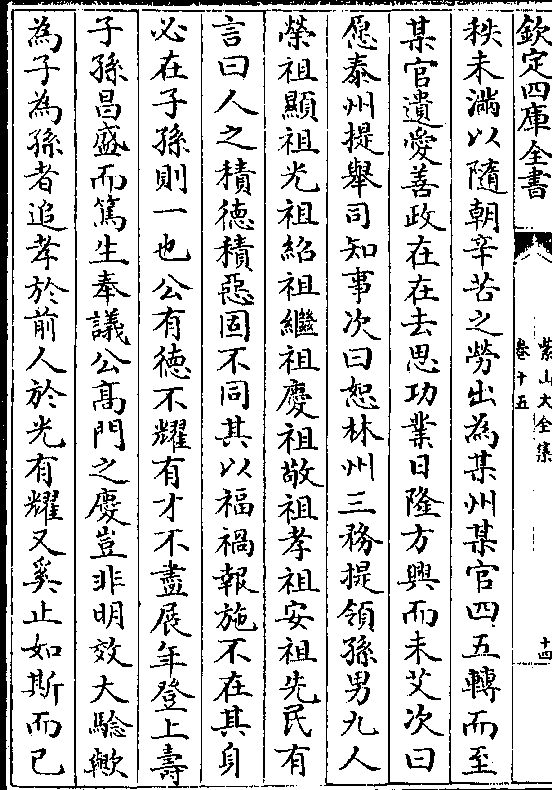 欽定四庫全書
紫山大全集
卷十五
十四
秩未滿以隨朝辛苦之勞出為某州某官四五轉而至
某官遺愛善政在在去思功業日隆方興而未艾次曰
愿泰州提舉司知事次曰恕林州三務提領孫男九人
榮祖顯祖光祖紹祖繼祖慶祖敬祖孝祖安祖先民有
言曰人之積德積惡固不同其以福禍報施不在其身
必在子孫則一也公有德不耀有才不盡展年登上壽
子孫昌盛而篤生奉議公髙門之慶豈非明效大驗歟
為子為孫者追孝於前人於光有耀又奚止如斯而已